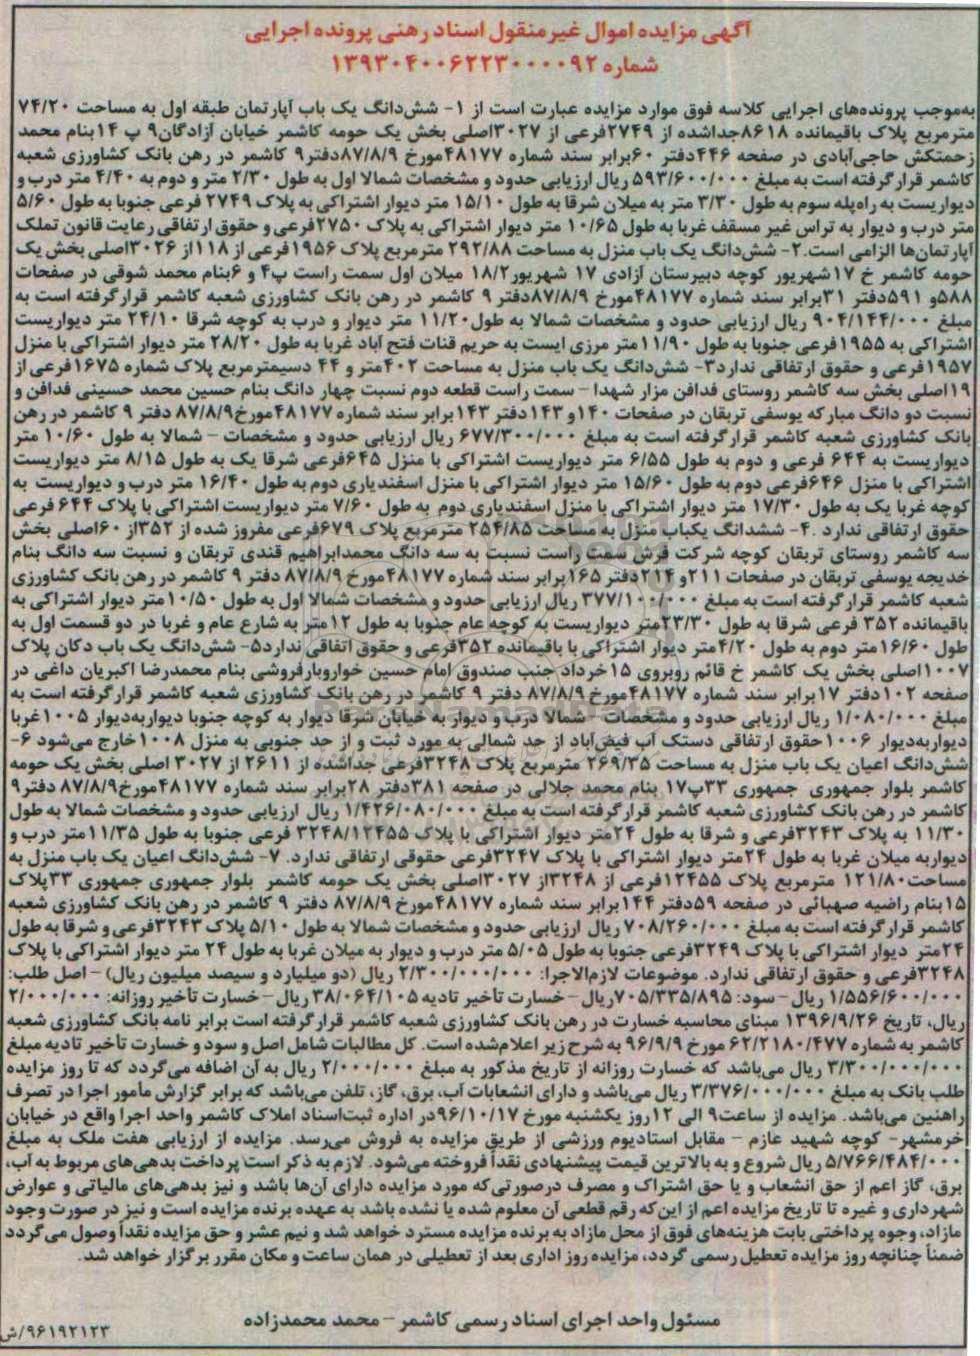 آگهی مزایده اموال غیرمنقول اسناد رهنی پرونده اجرایی
شماره ۱۳۹۳۰۴۰۰۶۲۲۳۰۰۰۰۹۲
به‌موجب پرونده‌های اجرایی کلاسه فوق موارد مزایده عبارت است از ۱- شش‌دانگ یک باب آپارتمان طبقه اول به مساحت ۷۴/۲۰
مترمربع پلاک باقیمانده ۸۶۱۸جداشده از ۲۷۴۹فرعی از ۳۰۲۷اصلی بخش یک حومه کاشمر خیابان آزادگان۹ پ ۱۴بنام محمد
زحمتکش حاجی‌آبادی در صفحه ۴۴۶دفتر ۶۰برابر سند شماره ۴۸۱۷۷مورخ ۸۷/۸/۹دفتر۹ کاشمر در رهن بانک کشاورزی شعبه
کاشمر قرارگرفته است به مبلغ ۵۹۳/۶۰۰/۰۰۰ ریال ارزیابی حدود و مشخصات شمالا اول به طول ۲/۳۰ متر و دوم به ۴/۴۰ متر درب و
دیواریست به راه‌پله سوم به طول ۳/۳۰ متر به میلان شرقا به طول ۱۵/۱۰ متر دیوار اشتراکی به پلاک ۲۷۴۹ فرعی جنوبا به طول ۵/۶۰
متر درب و دیوار به تراس غیر مسقف غربا به طول ۱۰/۶۵ متر دیوار اشتراکی به پلاک ۲۷۵۰فرعی و حقوق ارتفاقی رعایت قانون تملک
آپارتمان‌ها الزامی است.۲- شش‌دانگ یک باب منزل به مساحت ۲۹۲/۸۸ مترمربع پلاک ۱۹۵۶فرعی از ۱۱۸از ۳۰۲۶اصلی بخش یک
حومه کاشمر خ ۱۷شهریور کوچه دبیرستان آزادی ۱۷ شهریور۱۸/۲ میلان اول سمت راست پ۴ و ۶بنام محمد شوقی در صفحات
۵۸۸و ۵۹۱دفتر ۳۱برابر سند شماره ۴۸۱۷۷مورخ ۸۷/۸/۹دفتر ۹ کاشمر در رهن بانک کشاورزی شعبه کاشمر قرارگرفته است به
مبلغ ۹۰۴/۱۴۴/۰۰۰ ریال ارزیابی حدود و مشخصات شمالا به طول۱۱/۲۰ متر دیوار و درب به کوچه شرقا ۲۴/۱۰ متر دیواریست
اشتراکی به ۱۹۵۵فرعی جنوبا به طول ۱۱/۹۰متر مرزی ایست به حریم قنات فتح آباد غربا به طول ۲۸/۲۰ متر دیوار اشتراکی با منزل
۱۹۵۷فرعی و حقوق ارتفاقی ندارد۳- شش‌دانگ یک باب منزل به مساحت ۴۰۲متر و ۴۴ دسیمترمربع پلاک شماره ۱۶۷۵فرعی از
۱۹اصلی بخش سه کاشمر روستای فدافن مزار شهدا - سمت راست قطعه دوم نسبت چهار دانگ بنام حسین محمد حسینی فدافن و
نسبت دو دانگ مبارکه یوسفی تربقان در صفحات ۱۴۰و ۱۴۳دفتر ۱۴۳برابر سند شماره ۴۸۱۷۷مورخ۸۷/۸/۹ دفتر ۹ کاشمر در رهن
بانک کشاورزی شعبه کاشمر قرارگرفته است به مبلغ ۶۷۷/۳۰۰/۰۰۰ ریال ارزیابی حدود و مشخصات - شمالا به طول ۱۰/۶۰ متر
دیواریست به ۶۴۴ فرعی و دوم به طول ۶/۵۵ متر دیواریست اشتراکی با منزل ۶۴۵فرعی شرقا یک به طول ۸/۱۵ متر دیواریست
اشتراکی با منزل ۶۴۶فرعی دوم به طول ۱۵/۶۰ متر دیوار اشتراکی با منزل اسفندیاری دوم به طول ۱۶/۴۰ متر درب و دیواریست به
کوچه غربا یک به طول ۱۷/۳۰ متر دیوار اشتراکی با منزل اسفندیاری دوم به طول ۷/۶۰ متر دیواریست اشتراکی با پلاک ۶۴۴ فرعی
حقوق ارتفاقی ندارد .۴- ششدانگ یکباب منزل به مساحت ۲۵۴/۸۵ مترمربع پلاک ۶۷۹فرعی مفروز شده از ۳۵۲از ۶۰اصلی بخش
سه کاشمر روستای تربقان کوچه شرکت فرش سمت راست نسبت به سه دانگ محمدابراهیم قندی تربقان و نسبت سه دانگ بنام
خدیجه یوسفی تربقان در صفحات ۲۱۱و ۲۱۴دفتر ۱۶۵برابر سند شماره ۴۸۱۷۷مورخ ۸۷/۸/۹ دفتر ۹ کاشمر در رهن بانک کشاورزی
شعبه کاشمر قرارگرفته است به مبلغ ۳۷۷/۱۰۰/۰۰۰ ریال ارزیابی حدود و مشخصات شمالا اول به طول ۱۰/۵۰متر دیوار اشتراکی به
باقیمانده ۳۵۲ فرعی شرقا به طول ۲۳/۳۰متر دیواریست به کوچه عام جنوبا به طول ۱۲متر به شارع عام و غربا در دو قسمت اول به
طول ۱۶/۶۰متر دوم به طول ۴/۲۰متر دیوار اشتراکی با باقیمانده ۳۵۲فرعی و حقوق اتفاقی ندارد۵- شش‌دانگ یک باب دکان پلاک
۱۰۰۷اصلی بخش یک کاشمر خ قائم روبروی ۱۵خرداد جنب صندوق امام حسین خواروبارفروشی بنام محمدرضا اکبریان داغی در
صفحه ۱۰۲دفتر ۱۷برابر سند شماره ۴۸۱۷۷مورخ ۸۷/۸/۹ دفتر ۹ کاشمر در رهن بانک کشاورزی شعبه کاشمر قرارگرفته است به
مبلغ ۱/۰۸۰/۰۰۰ ریال ارزیابی حدود و مشخصات - شمالا درب و دیوار به خیابان شرقا دیوار به کوچه جنوبا دیواربه‌دیوار ۱۰۰۵غربا
دیواربه‌دیوار ۱۰۰۶حقوق ارتفاقی دستک آب فیض‌آباد از حد شمالی به مورد ثبت و از حد جنوبی به منزل ۱۰۰۸خارج می‌شود ۶-
شش‌دانگ اعیان یک باب منزل به مساحت ۲۶۹/۳۵ مترمربع پلاک ۳۲۴۸فرعی جداشده از ۲۶۱۱ از ۳۰۲۷ اصلی بخش یک حومه
کاشمر بلوار جمهوری جمهوری ۳۳پ۱۷ بنام محمد جلالی در صفحه ۳۸۱دفتر ۲۸برابر سند شماره ۴۸۱۷۷مورخ۸۷/۸/۹ دفتر۹
کاشمر در رهن بانک کشاورزی شعبه کاشمر قرارگرفته است به مبلغ ۱/۴۲۶/۰۸۰/۰۰۰ ریال ارزیابی حدود و مشخصات شمالا به طول
۱۱/۳۰ به پلاک ۳۲۴۳فرعی و شرقا به طول ۲۴متر دیوار اشتراکی با پلاک ۳۲۴۸/۱۲۴۵۵ فرعی جنوبا به طول ۱۱/۳۵متر درب و
دیواربه میلان غربا به طول ۲۴متر دیوار اشتراکی با پلاک ۳۲۴۷فرعی حقوقی ارتفاقی ندارد. ۷- شش‌دانگ اعیان یک باب منزل به
مساحت۱۲۱/۸۰ مترمربع پلاک ۱۲۴۵۵فرعی از ۳۲۴۸از ۳۰۲۷اصلی بخش یک حومه کاشمر بلوار جمهوری جمهوری ۳۳پلاک
۱۵بنام راضیه صهبائی در صفحه ۵۹دفتر ۱۴۴برابر سند شماره ۴۸۱۷۷مورخ ۸۷/۸/۹ دفتر ۹ کاشمر در رهن بانک کشاورزی شعبه
کاشمر قرارگرفته است به مبلغ ۷۰۸/۲۶۰/۰۰۰ ریال ارزیابی حدود و مشخصات شمالا به طول ۵/۱۰ پلاک ۳۲۴۳فرعی و شرقا به طول
۲۴متر دیوار اشتراکی با پلاک ۳۲۴۹فرعی جنوبا به طول ۵/۰۵ متر درب و دیوار به میلان غربا به طول ۲۴ متر دیوار اشتراکی با پلاک
۳۲۴۸فرعی و حقوق ارتفاقی ندارد. موضوعات لازم‌الاجرا: ۲/۳۰۰/۰۰۰/۰۰۰ ریال (دو میلیارد و سیصد میلیون ریال) - اصل طلب:
۱/۵۵۶/۶۰۰/۰۰۰ ریال - سود: ۷۰۵/۳۳۵/۸۹۵ریال - خسارت تأخیر تادیه ۳۸/۰۶۴/۱۰۵ ریال - خسارت تأخیر روزانه: ۲/۰۰۰/۰۰۰
ریال، تاریخ ۱۳۹۶/۹/۲۶ مبنای محاسبه خسارت در رهن بانک کشاورزی شعبه کاشمر قرارگرفته است برابر نامه بانک کشاورزی شعبه
کاشمر به شماره ۶۲/۲۱۸۰/۴۷۷ مورخ ۹۶/۹/۹ به شرح زیر اعلام‌شده است. کل مطالبات شامل اصل و سود و خسارت تأخیر تادیه مبلغ
۳/۳۰۰/۰۰۰/۰۰۰ ریال می‌باشد که خسارت روزانه از تاریخ مذکور به مبلغ ۲/۰۰۰/۰۰۰ ریال به آن اضافه می‌گردد که تا روز مزایده
طلب بانک به مبلغ ۳/۳۷۶/۰۰۰/۰۰۰ ریال می‌باشد و دارای انشعابات آب، برق، گاز، تلفن می‌باشد که برابر گزارش مأمور اجرا در تصرف
راهنین می‌باشد. مزایده از ساعت۹ الی ۱۲روز یکشنبه مورخ ۹۶/۱۰/۱۷در اداره ثبت‌اسناد املاک کاشمر واحد اجرا واقع در خیابان
خرمشهر- کوچه شهید عازم - مقابل استادیوم ورزشی از طریق مزایده به فروش می‌رسد. مزایده از ارزیابی هفت ملک به مبلغ
۵/۷۶۶/۴۸۴/۰۰۰ ریال شروع و به بالاترین قیمت پیشنهادی نقداً فروخته می‌شود. لازم به ذکر است پرداخت بدهی‌های مربوط به آب،
برق، گاز اعم از حق انشعاب و یا حق اشتراک و مصرف درصورتی‌که مورد مزایده دارای آن‌ها باشد و نیز بدهی‌های مالیاتی و عوارض
شهرداری و غیره تا تاریخ مزایده اعم از این‌که رقم قطعی آن معلوم شده یا نشده باشد به عهده برنده مزایده است و نیز در صورت وجود
مازاد، وجوه پرداختی بابت هزینه‌های فوق از محل مازاد به برنده مزایده مسترد خواهد شد و نیم عشر و حق مزایده نقداً وصول می‌گردد
ضمناً چنانچه روز مزایده تعطیل رسمی گردد، مزایده روز اداری بعد از تعطیلی در همان ساعت و مکان مقرر برگزار خواهد شد.
مسئول واحد اجرای اسناد رسمی کاشمر - محمد محمدزاده
۹۶۱۹۲۱۲۳/ش